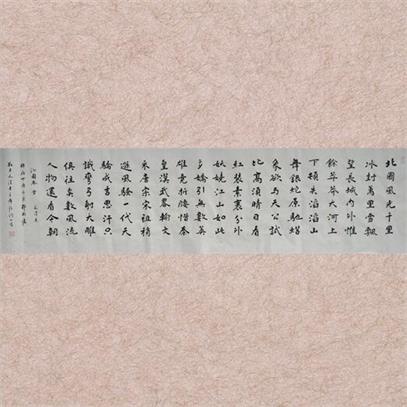 北國風光千里
冰封萬里雪飄
望長城內外惟
餘莽莽大河上
下頓失滔滔山
舞銀蛇原馳蠟
象欲与天公試
比高須晴日看
紅裝素裹分外
妖嬈江山如此
多嬌引無數英
雄競折腰惜秦
皇漢武略輸文
采唐宗宋祖稍
遜風騷一代天
驕成吉思汗只
識彎弓射大雕
俱往矣數風流
人物還看今朝
沁園春 雪